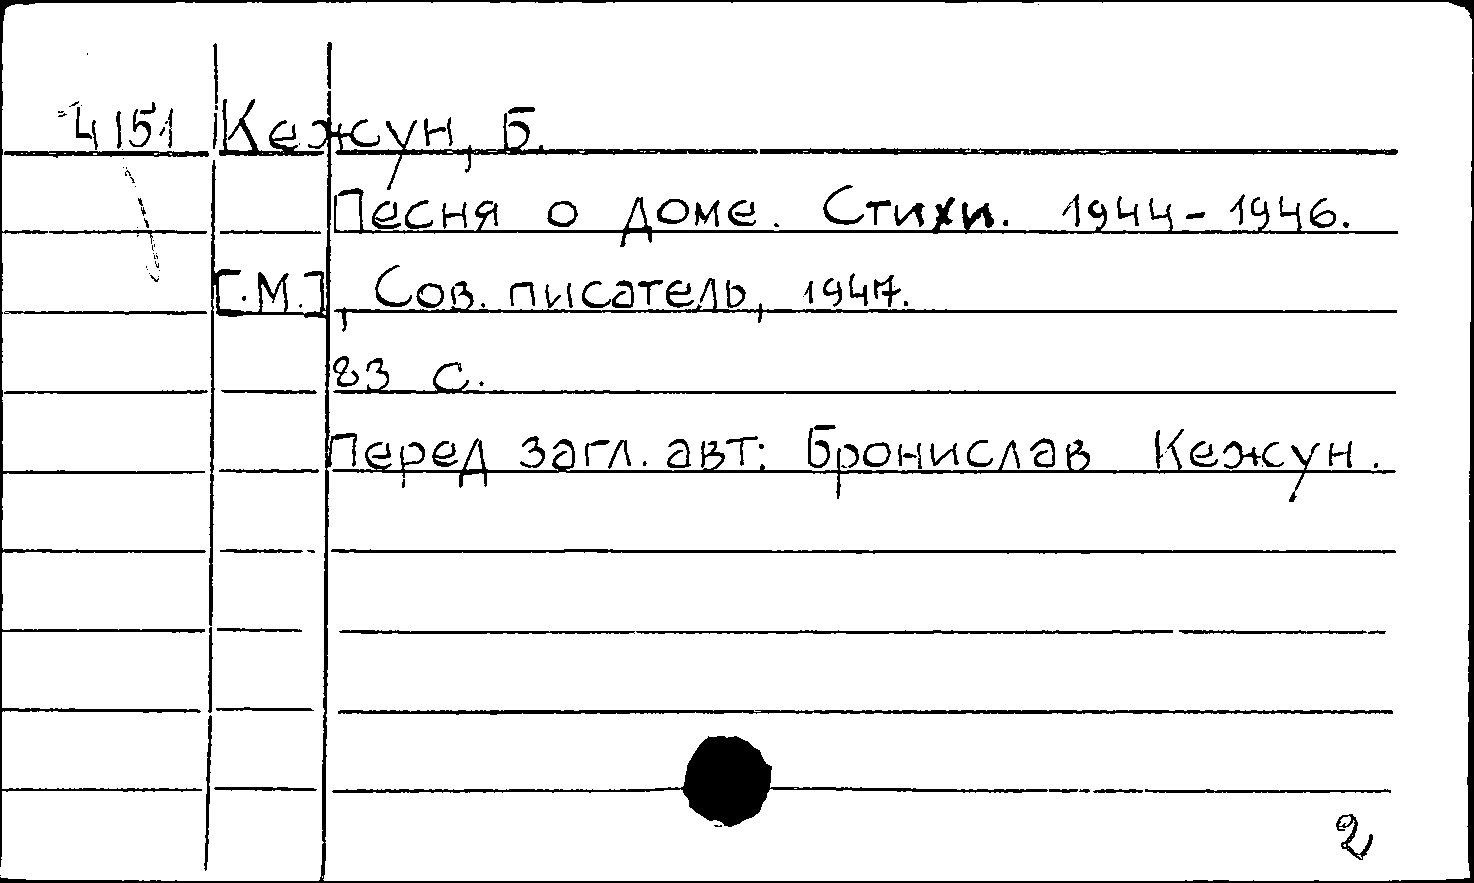 4151 Кежун, Б.
Песня о доме. Стихи. 1944-1946.
[.М.], Сов. писатель, 1947.
83 с.
Перед загл. авт: Бронислав Кежун.
2